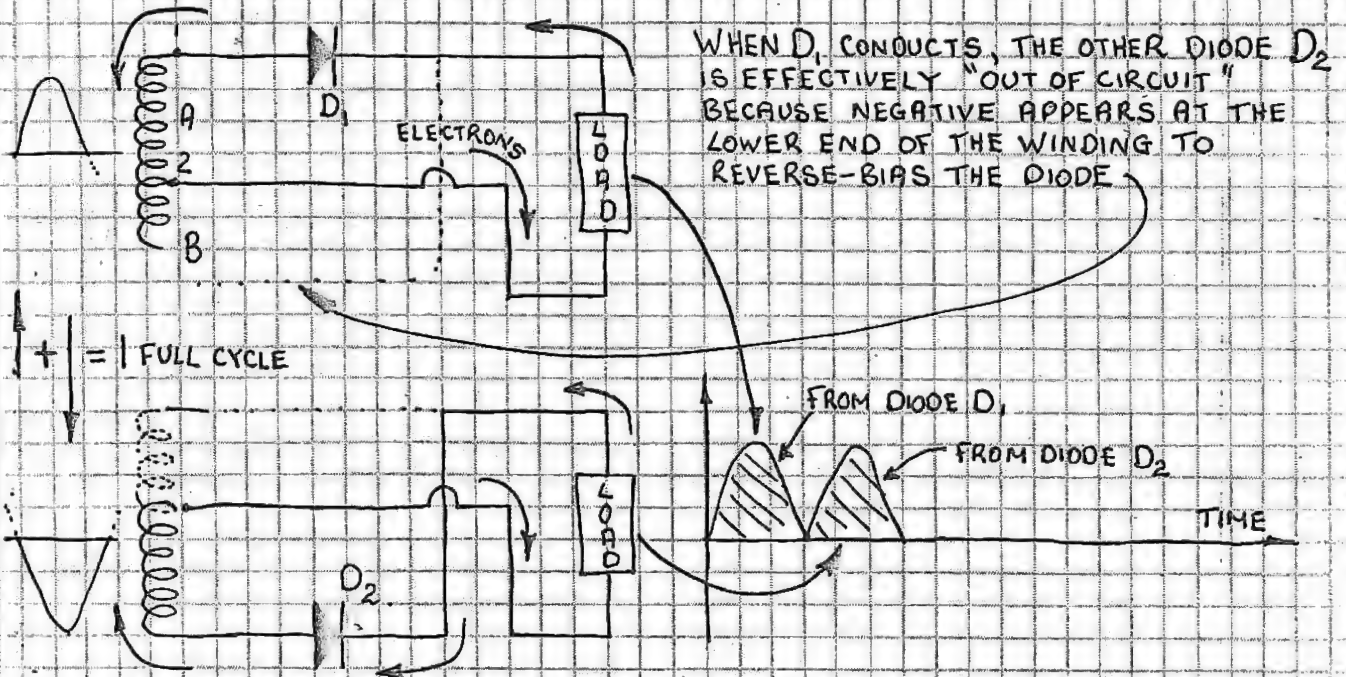 WHEN D₁ CONDUCTS, THE OTHER DIODE D₂
IS EFFECTIVELY "OUT OF CIRCUIT"
BECAUSE NEGATIVE APPEARS AT THE
LOWER END OF THE WINDING TO
REVERSE-BIAS THE DIODE
D₁
A
2
B
ELECTRONS
LOAD
+ = 1 FULL CYCLE
FROM DIODE D₁
FROM DIODE D₂
TIME
LOAD
D₂